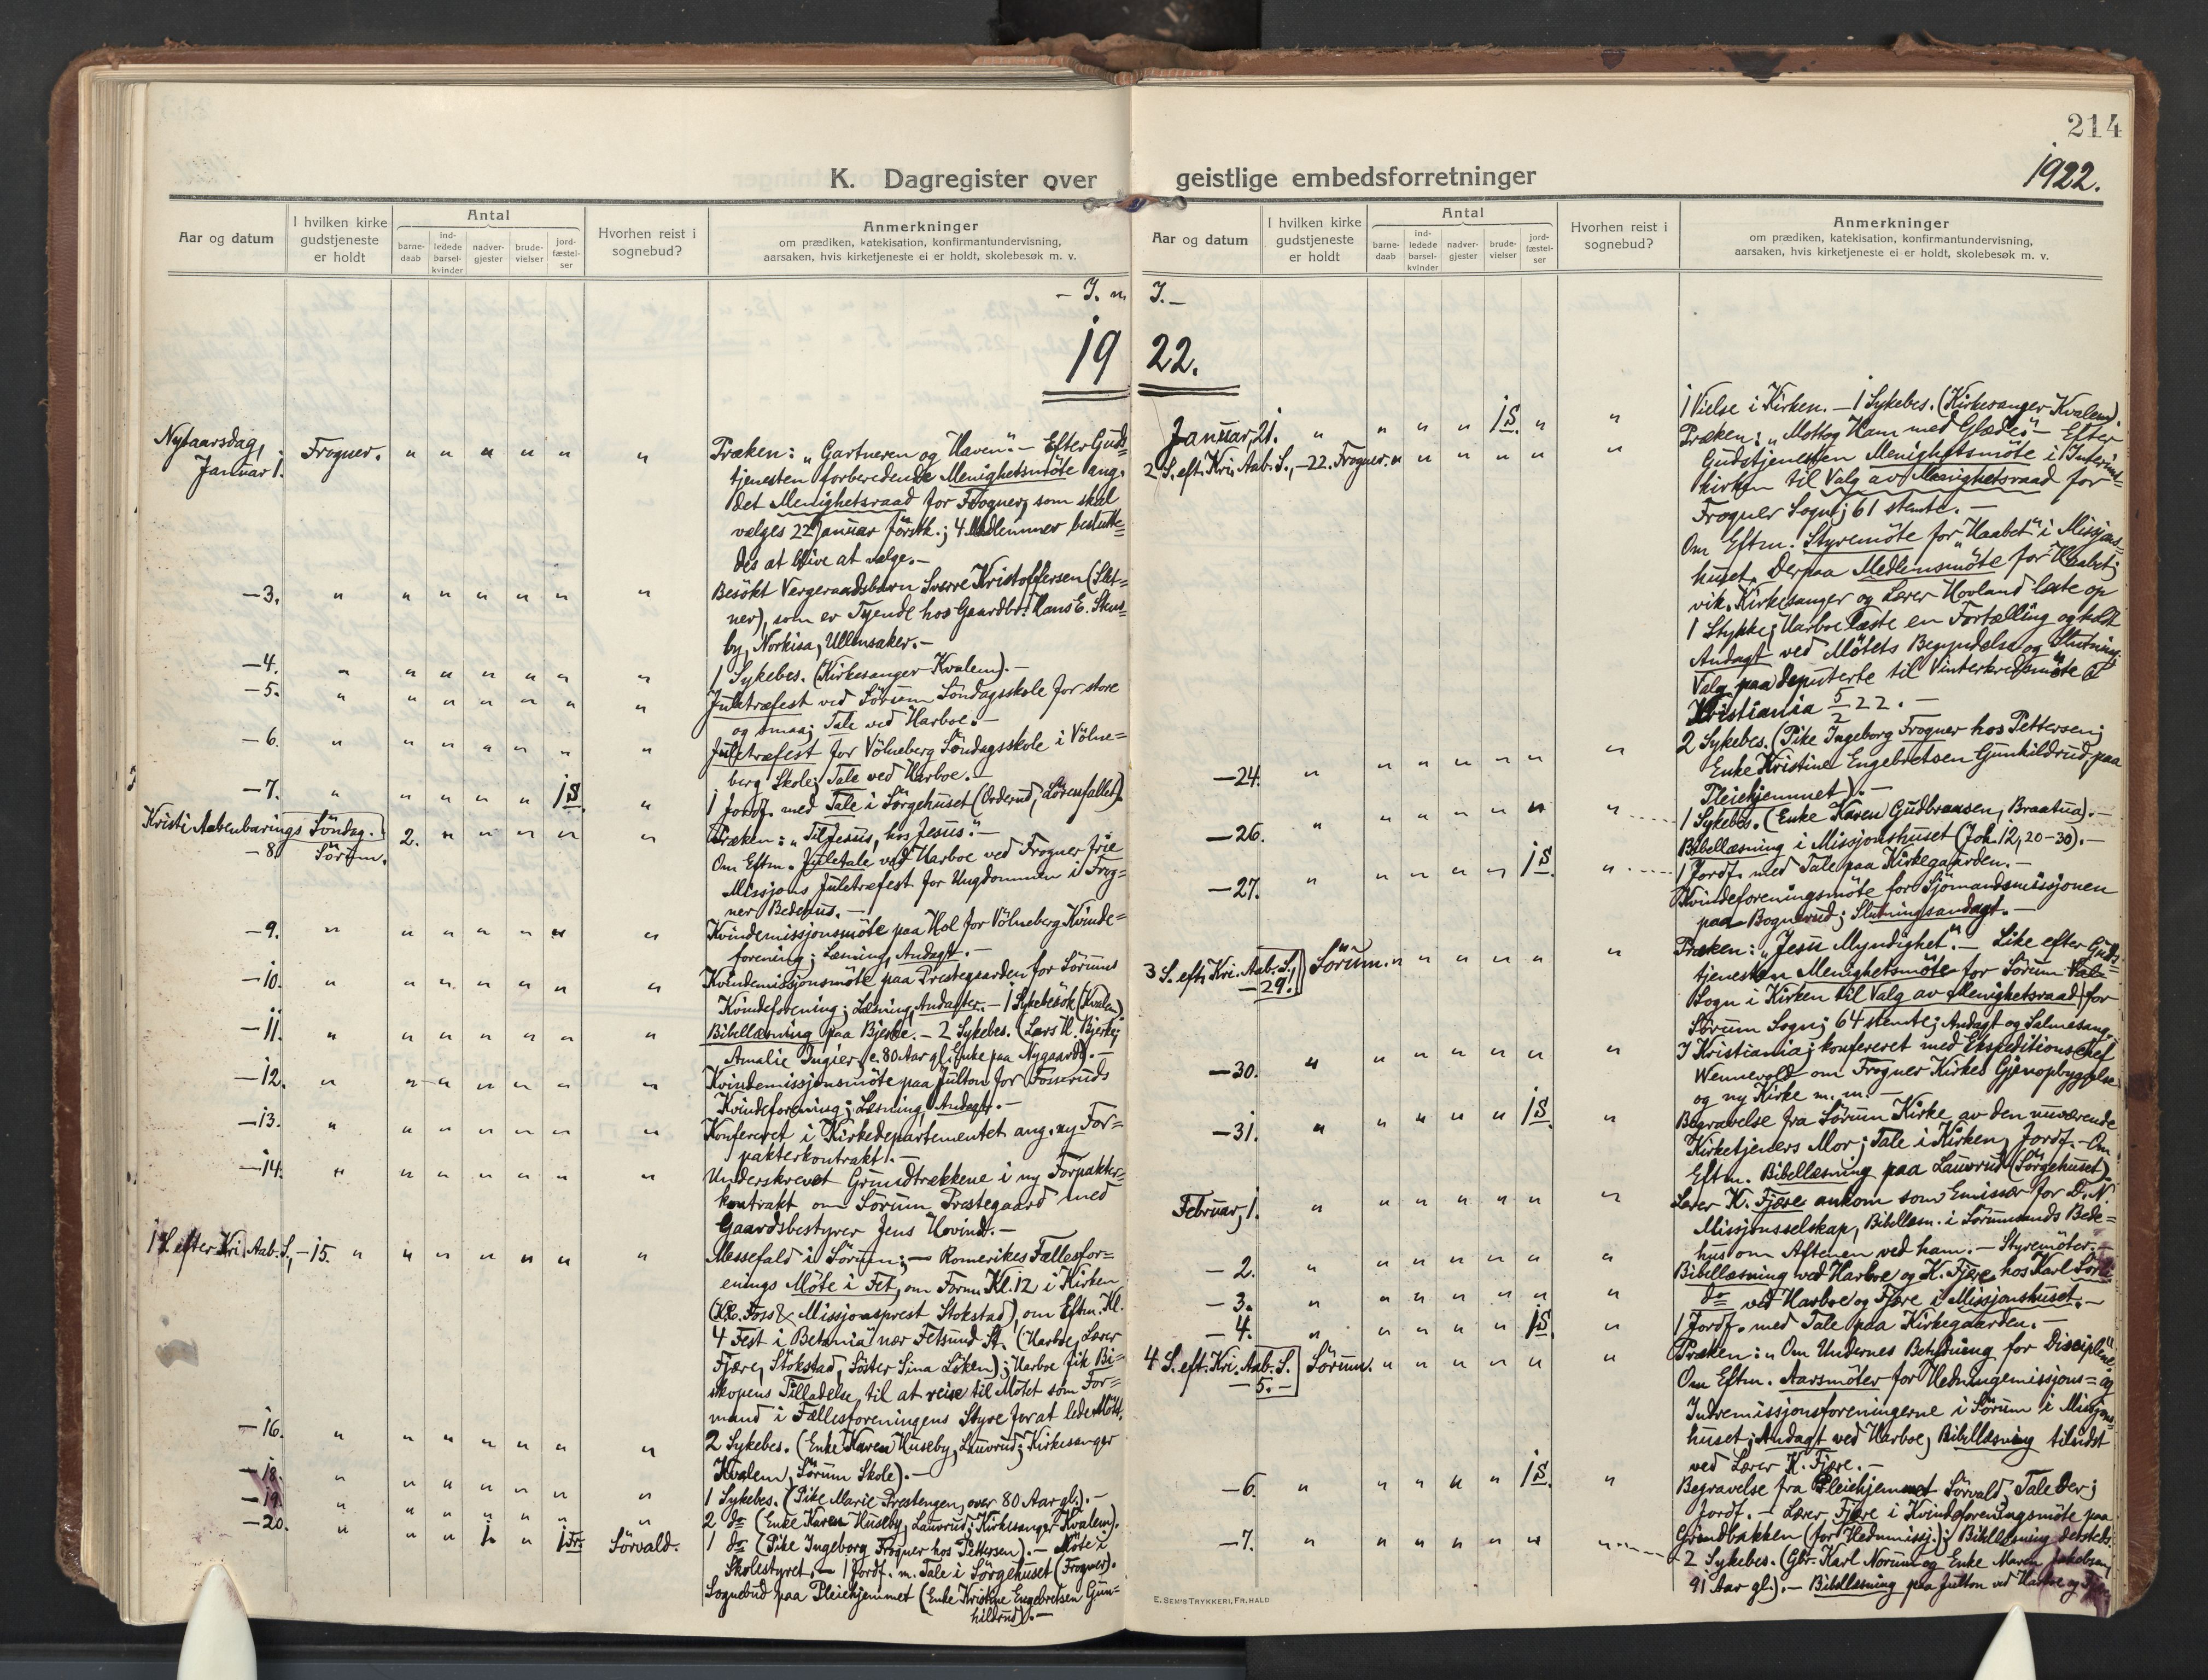 214
1922.
K. Dagregister over geistlige embedsforretninger
Aar og datum
I hvilken kirke gudstjeneste er holdt
Antal
barne-daab
ind-ledede barsel-kvinder
nadver-gjester
brude-vielser
jord-fæstel-ser
Hvorhen reist i sognebud?
Anmerkninger
om prædiken, katekisation, konfirmantundervisning,
aarsaken, hvis kirketjeneste ei er holdt, skolebesøk m. v.
- J. n.
19
Nytaarsdag, Januar 1. Frogner. " " " " " " Præken: „Gartneren og Haven". - Efter Guds-
tjenesten forberedende Menighetsmöte ang.
det Menighetsraad for Frogner, som skal
vælges 22 Januar förstk.; 4 Medlemmer beslutte=
des at blive at vælge. -
-3. " " " " " " " Besökt Vergeraadsbarn Sverre Kristoffersen (Slet=
ner), som er Tyende hos Gaardbr. Hans E. Stens=
by, Norkisa, Ullensaker. -
-4. " " " " " " " 1 Sykebes. (Kirkesanger Kvalem). -
-5. " " " " " " " Juletræfest ved Sörum Söndagsskole for store
og smaa; Tale ved Harboe. -
-6. " " " " " " " Juletræfest for Völneberg Söndagsskole i Völne=
berg Skole; Tale ved Harboe. -
-7. " " " " " 1 S. " 1 Jordf. med Tale i Sörgehuset (Orderud, Sörensfallet).
Kristi Aabenbarings Söndag. -8. Sörum. 2. " " " " " Præken: „Til Jesus, hos Jesus". -
Om Eftm. Juletale ved Harboe ved Frogner frie
Missjons Juletræfest for Ungdommen i Frog=
ner Bedehus. -
-9. " " " " " " " Kvindemissjonsmöte paa Hol for Völneberg Kvinde=
forening; Læsning, Andagt. -
-10. " " " " " " " Kvindemissjonsmöte paa Prestegaarden for Sörums
Kvindeforening; Læsning, Andagter. - 1 Sykebesök (Kvalem)
-11. " " " " " " " Bibellæsning paa Bjerke. - 2 Sykebes. (Lars H. Bjerke;
Amalie Ingier, c. 80 Aar gl. Enke paa Nygaard). -
-12. " " " " " " " Kvindemissjonsmöte paa Julton for Fosseruds
Kvindeforening; Læsning, Andagt. -
-13. " " " " " " " Konfereret i Kirkedepartementet ang. ny For=
pakterkontrakt. -
-14. " " " " " " " Underskrevet Grundtrækkene i ny Forpakter=
kontrakt om Sörum Prestegaard med
Gaardsbestyrer Jens Hovind. -
1 S. efter Kri. Aab. S., -15. " " " " " " " Messefald i Sörum; - Romerikes Fællesfor=
enings Möte i Fet, om Form. Kl. 12 i Kirken
(K.R. Foss & Missjonsprest Stokstad), om Eftm. Kl.
4 Fest i „Betania" nær Fetsund St. (Harboe, Lærer
Fjære, Stokstad, Söster Sina Löken); Harboe fik Bi=
skopens Tilladelse til at reise til Mötet som For=
mand i Fællesforeningens Styre for at lede Mötet.
-16. " " " " " " " 2 Sykebes. (Enke Karen Huseby, Lauvrud; Kirkesanger
Kvalem, Sörum Skole). -
-18. " " " " " " " 1 Sykebes. (Pike Marie Prestengen, over 80 Aar gl.). -
-19. " " " " " " " 2 do (Enke Karen Huseby, Lauvrud; Kirkesanger Kvalem).
-20. " " " 1. " 1 Fr. Sörvald. 1 do (Pike Ingeborg Frogner hos Pettersen). - Möte i
Skolestyret. - 1 Jordf. m. Tale i Sörgehuset (Frogner).
Sognebud paa Pleiehjemmet (Enke Kristine Engebretsen Gun=
hildrud). -
Aar og datum
I hvilken kirke gudstjeneste er holdt
Antal
barne-daab
ind-ledede barsel-kvinder
nadver-gjester
brude-vielser
jord-fæstel-ser
Hvorhen reist i sognebud?
Anmerkninger
om prædiken, katekisation, konfirmantundervisning,
aarsaken, hvis kirketjeneste ei er holdt, skolebesøk m. v.
J. -
22.
Januar, 21. " " " " 1 S. " " 1 Vielse i Kirken. - 1 Sykebes. (Kirkesanger Kvalem)
2 S. eft. Kri. Aab. S., -22. Frogner. " " " " " " Præken: „Mottog Ham med Glæde". - Efter
Gudstjenesten Menighetsmöte i Interims-
kirken til Valg av Menighetsraad for
Frogner Sogn; 61 stemte. -
Om Eftm. Styremöte for „Haabet" i Missjons=
huset. Derpaa Medlemsmöte for Haabet;
vik. Kirkesanger og Lærer Hovland læste op
1 Stykke; Harboe læste en Fortælling og holdt
Andagt ved Mötets Begyndelse og Slutning;
Valg paa deputerte til Vinterkredsmöte i
Kristiania 5/2 22. -
-24. " " " " " " " 2 Sykebes. (Pike Ingeborg Frogner hos Pettersen;
Enke Kristine Engebretsen Gunhildrud, paa
Pleiehjemmet). -
-26. " " " " " " " 1 Sykebes. (Enke Karen Gudbransen, Braatua). -
Bibellæsning i Missjonshuset (Joh. 12, 20-30). -
-27. " " " " " 1 S. " 1 Jordf. med Tale paa Kirkegaarden. -
Kvindeforeningsmöte for Sjömandsmissjonen
paa Bognerud; Slutningsandagt. -
3 S. eft. Kri. Aab. S., -29. Sörum. " " " " " " Præken: „Jesu Myndighet". - Like efter Guds=
tjenesten Menighetsmöte for Sörum
Sogn i Kirken til Valg av Menighetsraad for
Sörum Sogn; 64 stemte; Andagt og Salmesang.
-30. " " " " " " " I Kristiania; konfereret med Ekspeditionschef
Wennevold om Frogner Kirkes Gjenopbyggelse
og ny Kirke m. m. -
-31. " " " " " 1 S. " Begravelse fra Sörum Kirke av den nuværende
Kirketjeners Mor; Tale i Kirken, Jordf. - Om
Eftm. Bibellæsning paa Lauvrud (Sörgehuset).
Februar, 1. " " " " " " " Lærer K. Fjære ankom som Emissær for D. N.
Missjonsselskap, Bibellæsn. i Sörumsands Bede=
hus om Aftenen ved ham. - Styremöter. -
-2. " " " " " " " Bibellæsning ved Harboe og K. Fjære hos Karl
-3. " " " " " " " do ved Harboe og Fjære i Missjonshuset. -
-4. " " " " " 1 S. " 1 Jordf. med Tale paa Kirkegaarden. -
4 S. eft. Kri. Aab. S. -5.- Sörum. " " " " " " Præken: „Om Undernes Betydning for Disciplene"
Om Eftm. Aarsmöter for Hedningemissjons= og
Indremissjonsforeningerne i Sörum i Missjons=
huset; Andagt ved Harboe, Bibellæsning tilsidst
ved Lærer K. Fjære. -
-6. " " " " " 1 S. " Begravelse fra Pleiehjemmet Sörvald; Tale der;
Jordf. - Lærer Fjære i Kvindeforeningsmöte paa
Grindbakken (for Hedn.missj.); Bibellæsning dersteds.
-7. " " " " " " " 2 Sykebes. (Gbr. Karl Norum og Enke Maren Jakobsen,
91 Aar gl.). - Bibellæsning paa Julton ved Harboe og
E. SEM'S TRYKKERI, FR.HALD